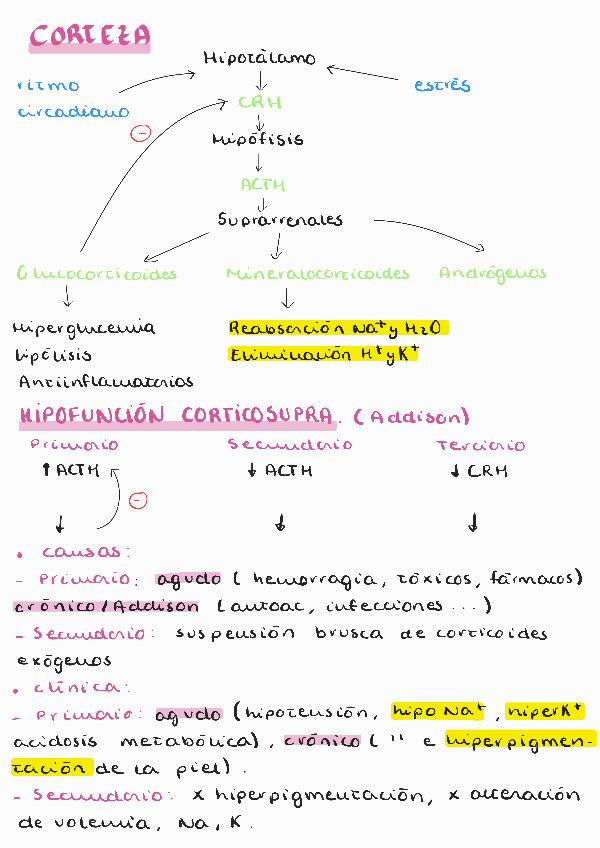 CORTEZA
Hipotálamo
ritmo
circadiano
estrés
CRH
-
Hipófisis
ACTH
Suprarrenales
Glucocorticoides Mineralocorticoides Andrógenos
Hiperglucemia
Lipólisis
Antiinflamatorios
Reabsorción Na⁺ y H2O
Eliminación H⁺ y K⁺
HIPOFUNCIÓN CORTICOSUPRA. (Addison)
Primario Secundario Terciario
↑ ACTH ↓ ACTH ↓ CRH
-
↓ ↓ ↓
• causas:
- Primario: agudo (hemorragia, tóxicos, fármacos)
crónico/Addison (autoac, infecciones ...)
- Secundario: suspensión brusca de corticoides
exógenos
• clínica:
- Primario: agudo (hipotensión, hipo Na⁺, hiperK⁺
acidosis metabólica), crónico ( " e hiperpigmen-
tación de la piel).
- Secundario: x hiperpigmentación, x alteración
de volemia, Na, K.